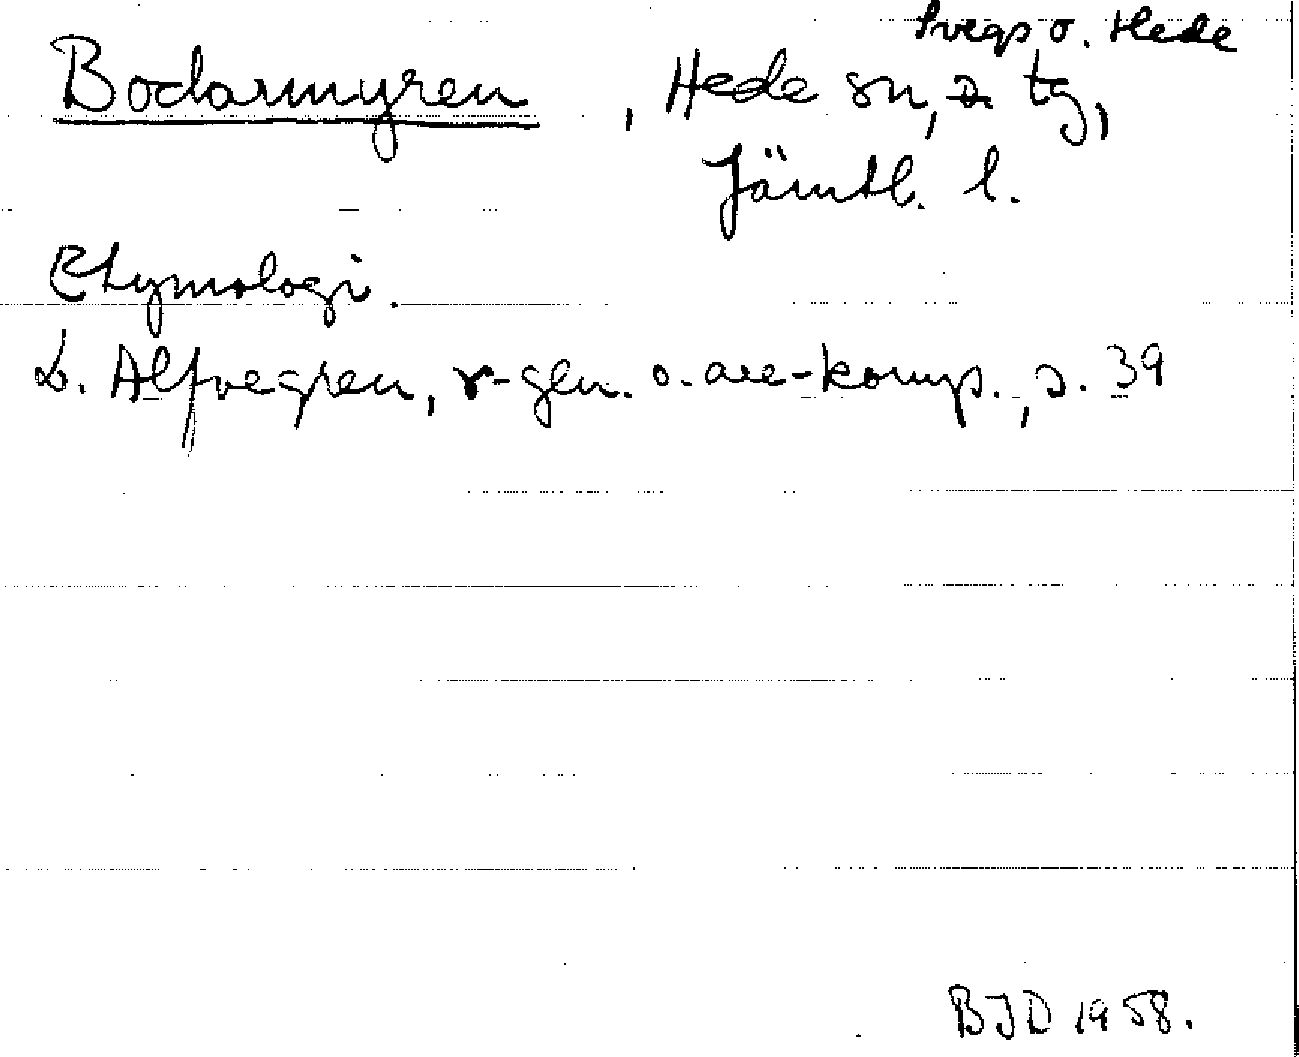 Svegs o. Hede
Bodarmyren, Hede sn, s. tg,
Jämtl. l.
Etymologi.
L. Alfvegren, r-gen. o. are-komp., s. 39
BJD 1958.